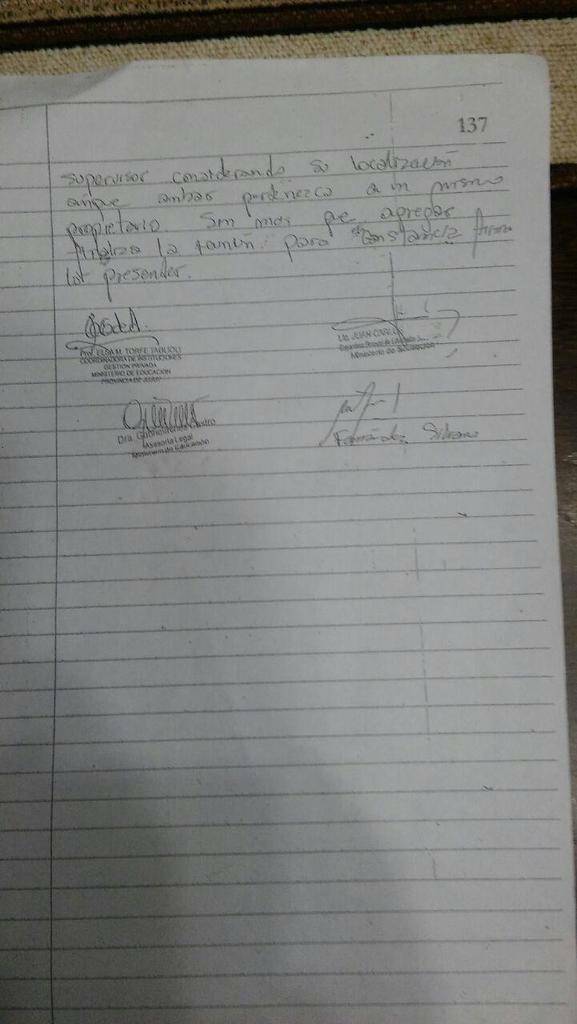 137
supervisor considerando su localización
aunque ambas pertenezca a un mismo
propietario Sin mas que agregar
finaliza la reunión para constancia firma
los presentes.
Prof. ELDA M. TORFE TAGLIOLI
COORDINADORA DE INSTITUCIONES
GESTION PRIVADA
MINISTERIO DE EDUCACION
PROVINCIA DE
Lic. JUAN CARLOS
Ministerio de Educación
Dra. Castro
Asesoría Legal
Ministerio de Educación
Fernández